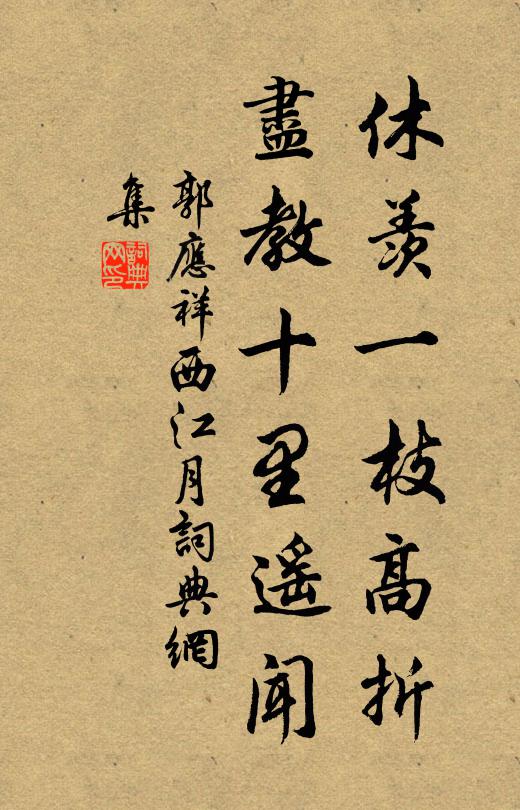 休羨一枝高折
盡教十里遥闻
郭應祥西江月詞典網
集
詞典
网印